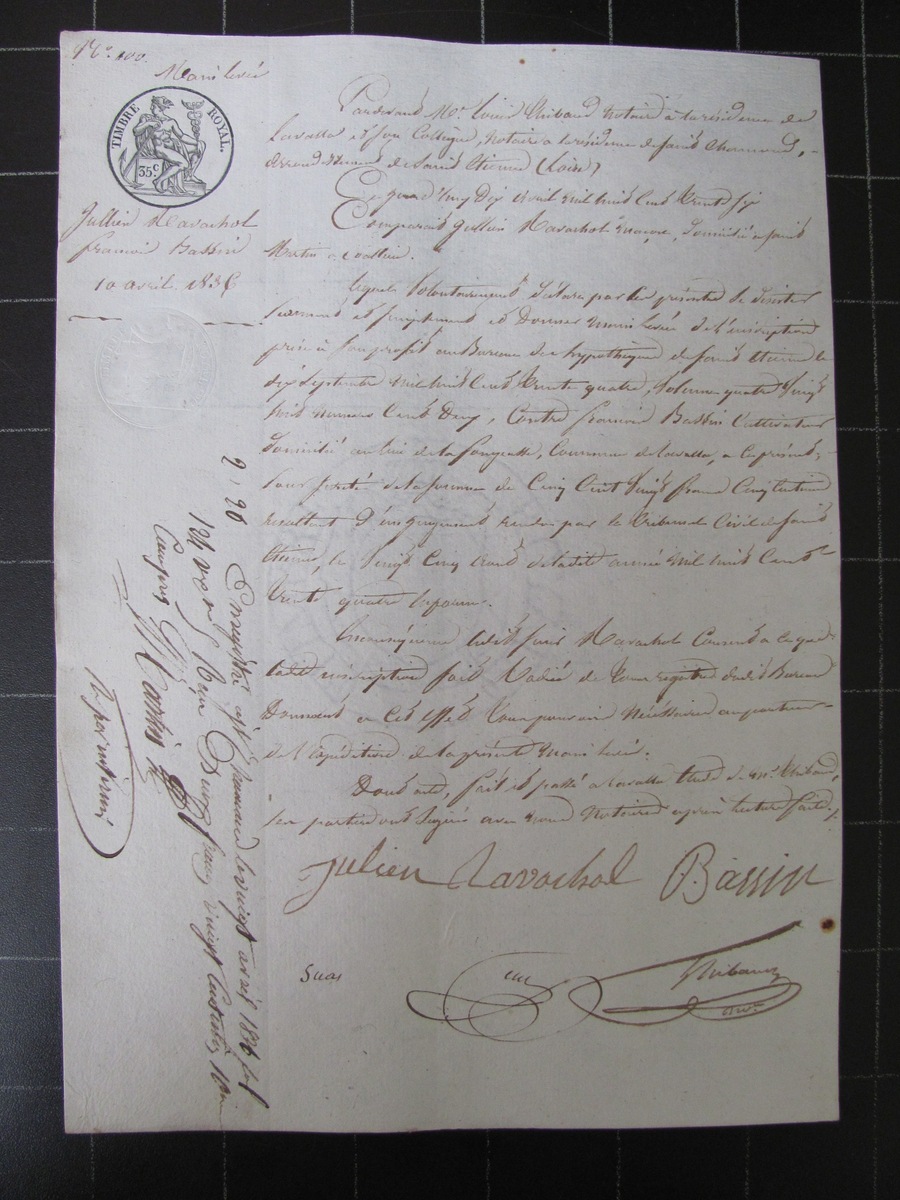 Mainlevée
TIMBRE ROYAL.
35c.
Jullien Ravachol
francoi Bassin
10 avril 1836
Pardevant Me. Louis Thibaud Notaire à la résidence de
Lavalla et Son Collegue, Notaire a la résidence de saint chamond,
arrondissement de Saint Etienne (Loire)
Ce jourd'huy Dix avril mil huit Cent trente six
Comparait Jullien Ravachol maçon, Domicilié a saint
Martin a Coailieu.
lequel volontairement Déclare par les présentes se désister
purement et simplement et Donner mainlevée de l'inscription
prise à Son profit au Bureau des hypotheques de saint etienne le
dix Septembre mil huit Cent trente quatre, volume quatre vingt
trois numero Cent Deux, Contre francoi Bassin Cultivateur
Domicilié au lieu de la fongeasse, Commune de Lavalla, a ce présent,
pour sureté de la somme de Cinq Cent vingt francs Cinq Centimes
resultant d'un jugement rendu par le tribunal Civil de saint
etienne, le vingt Cinq aout de ladite année mil huit Cent
trente quatre informe.
En conséquence ledit sieur Ravachol Consent a ce que
ladite inscription soit Radiée de tous registres dudit Bureau
Donnant a cet effet tous pouvoirs nécessaires au porteur
de l'expédition de la présente mainlevée.
Dont acte, fait et passé a Lavalla étude de Me Thibaud,
les parties ont Signé avec nous Notaires après lecture faite.
Julien Ravachol Bassin
Thibaud
nore
2, 20
Enregistré à St chamond le vingt avril 1836 fol
126 Reçu Deux francs vingt Centimes 10me
Compris